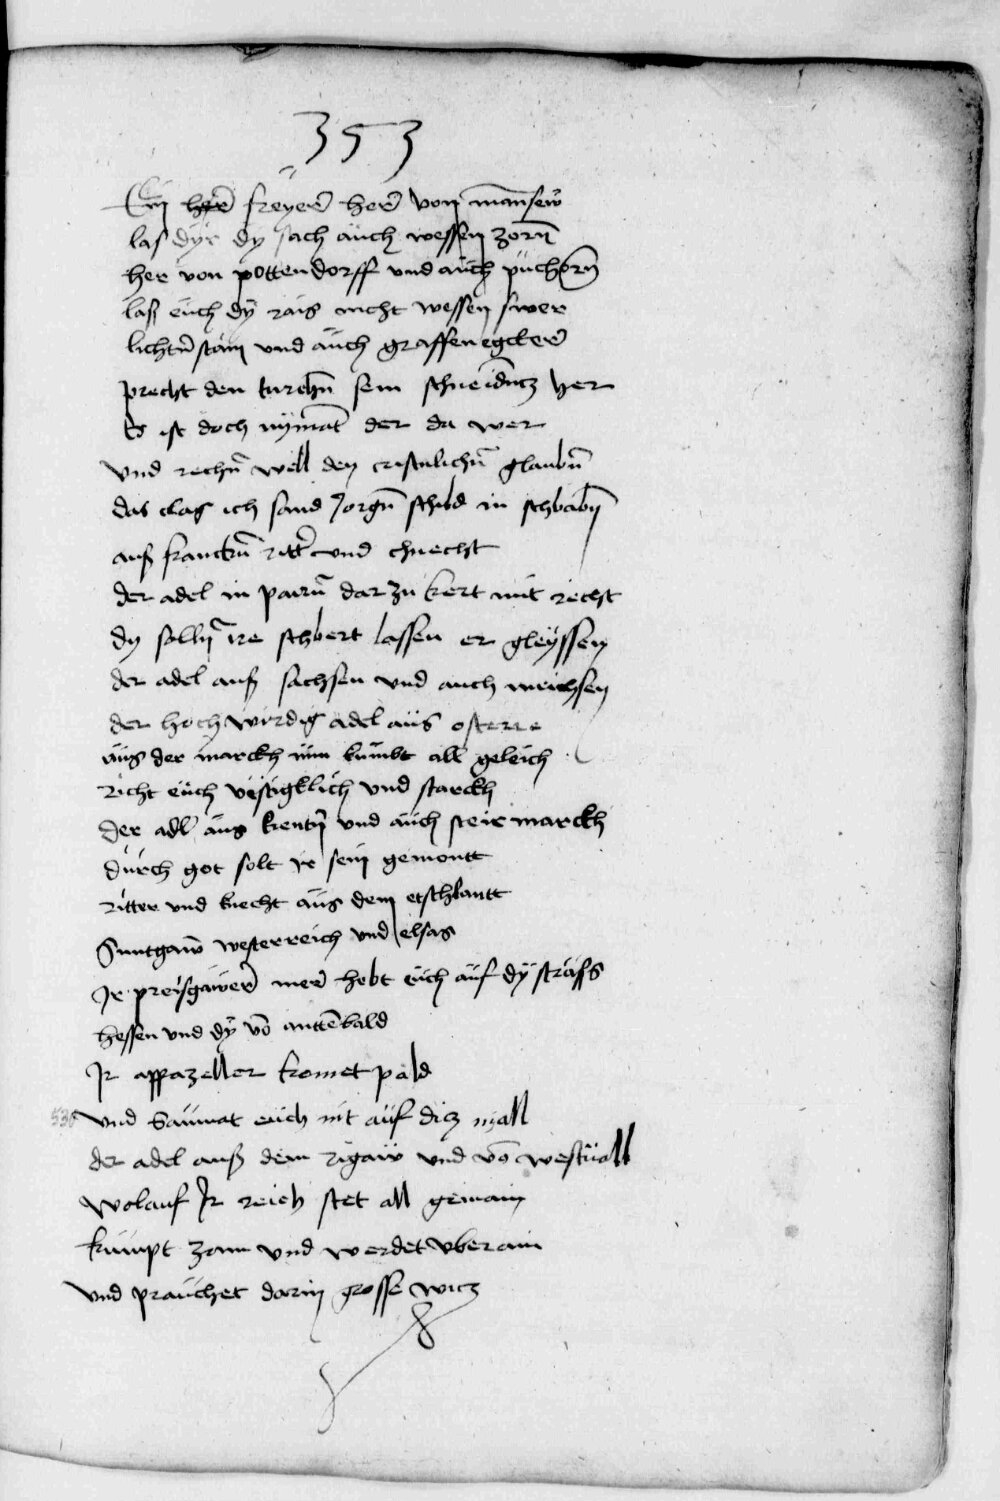 353
Ein her̄ freyer̄ her̄ von mansew̄
las dyr dy sach auch wessen zorn̄
her von pottendorff vnd auch püchorn̄
lasz euch dÿ rais nicht wessen swer
lichtn̄stain vnd auch graffenegker̄
precht den turckn̄ sem schneidn̄tz her
Es ist doch nymāt der da wer
vnd rechn̄ well den cristnlichn̄ glaubn̄
das clag ich sand Jorgn̄ schild in schbabn̄
ausz franckn̄ ritt̄ vnd chnecht
der adel in pairn̄ dar zu kert mit recht
dy solln̄ ire schbert lassen er gleÿssen
der adel ausz sachsen vnd auch meichsen
der hoch wirdig adel aüs osterre
aüs der marckh nün kumbt all geleich
richt eüch vestigklich vnd starckh
der adl aüs kerntn̄ vnd auch steirmarckh
dürch got solt ir sein gemontt
ritter vnd knecht aüs dem etschlantt
Suntgaw̄ westerreich vnd elsas
Ir preisgawer̄ mer̄ hebt eüch aüf dÿ strass
hessen vnd dÿ vō ottēbald
Ir appazeller komet pald
536
vnd saumat euch nit aüf diz mall
der adel ausz dem rigaw̄ vnd vō westüall
wolauf Ir reich stet all gemain
kumpt zam vnd werdet vberain
vnd praüchet darin grosse witz